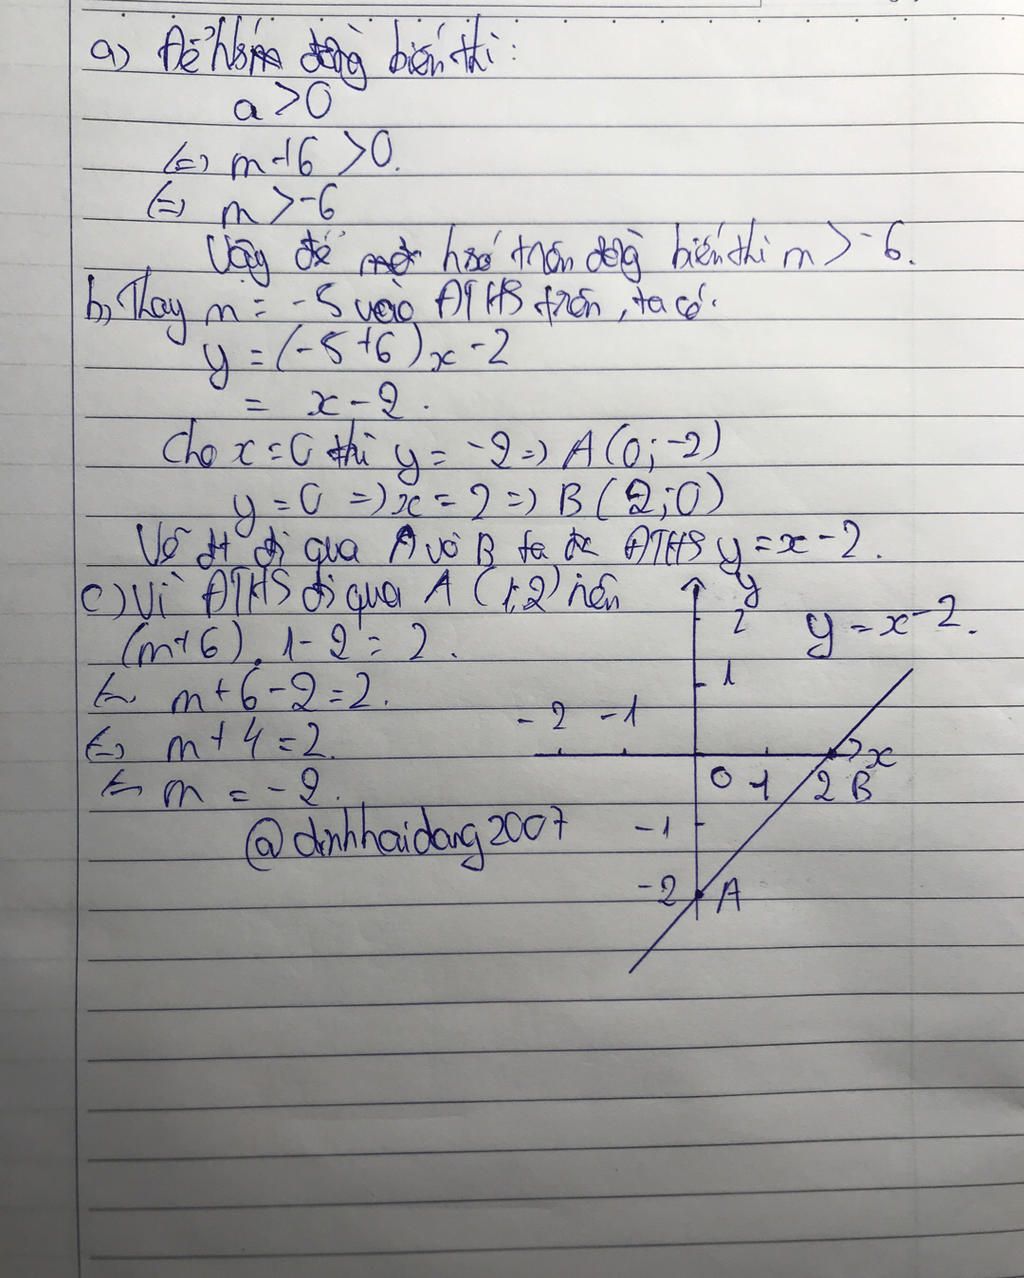 a) Để hsố đồng biến thì:
a > 0
<=> m+6 > 0.
<=> m > -6
Vậy để hsố trên đồng biến thì m > -6.
b, Thay m = -5 vào ĐTHS trên, ta có:
y = (-5+6)x - 2
= x - 2.
Cho x = 0 thì y = -2 => A (0; -2)
y = 0 => x = 2 => B (2; 0)
Vẽ đt đi qua A và B ta đc ĐTHS y = x - 2.
c) Vì ĐTHS đi qua A (1; 2) nên
(m+6). 1 - 2 = 2.
<=> m + 6 - 2 = 2.
<=> m + 4 = 2.
<=> m = -2.
@dinhhaidang2007
y
2
y = x - 2.
1
-2 -1
x
0 1 2 B
-1
-2 A